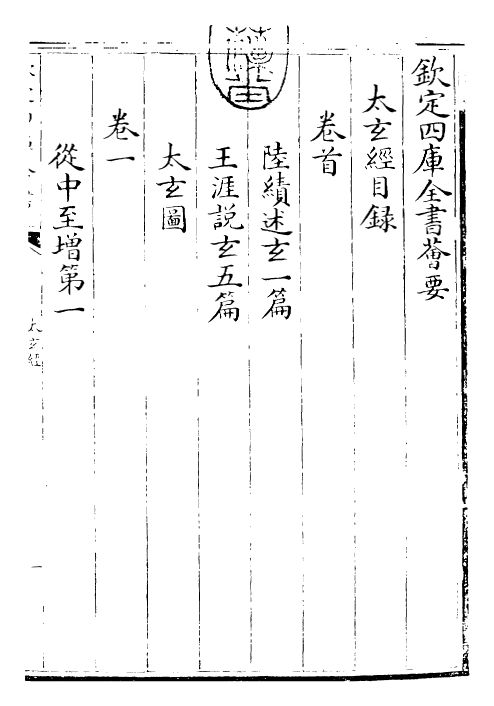 欽定四庫全書薈要
太玄經目録
卷首
陸績述玄一篇
王涯説玄五篇
太玄圖
卷一
從中至增第一
太玄經
一